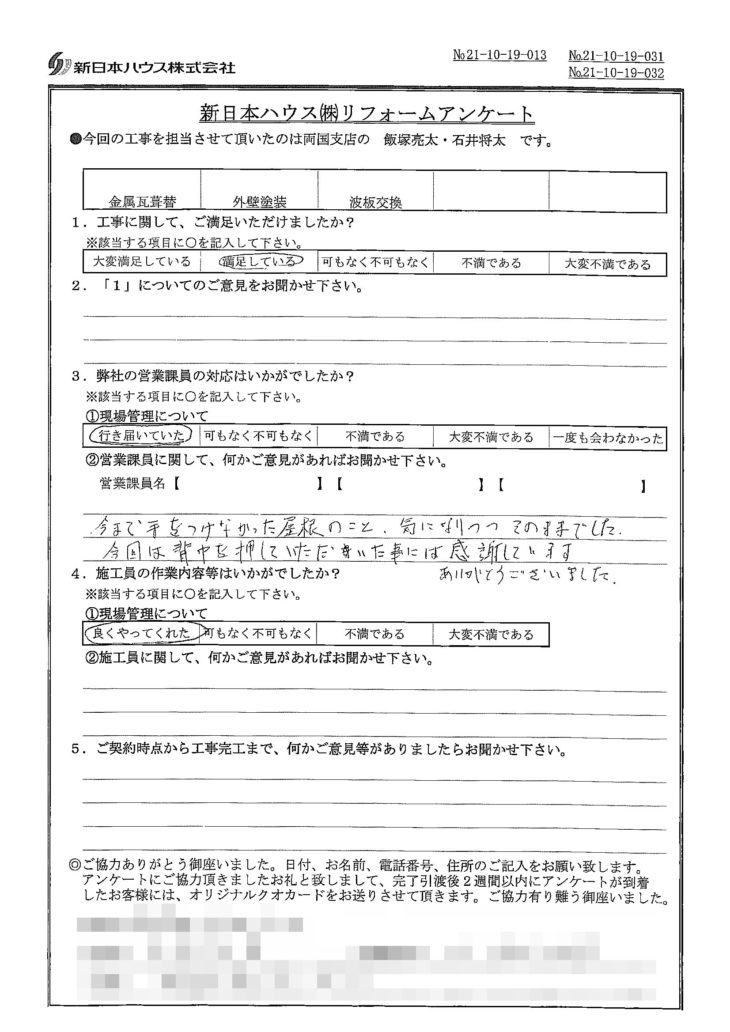 新日本ハウス株式会社
№21-10-19-013 №21-10-19-031
№21-10-19-032
新日本ハウス㈱リフォームアンケート
●今回の工事を担当させて頂いたのは両国支店の 飯塚亮太・石井将太 です。
金属瓦葺替 外壁塗装 波板交換
1．工事に関して、ご満足いただけましたか？
※該当する項目に○を記入して下さい。
大変満足している 満足している 可もなく不可もなく 不満である 大変不満である
2．「1」についてのご意見をお聞かせ下さい。
3．弊社の営業課員の対応はいかがでしたか？
※該当する項目に○を記入して下さい。
①現場管理について
行き届いていた 可もなく不可もなく 不満である 大変不満である 一度も会わなかった
②営業課員に関して、何かご意見があればお聞かせ下さい。
営業課員名【 】【 】【 】
今まで手をつけなかった屋根のこと、気になりつつそのままでした。
今回は背中を押していただいた事には感謝しています
ありがとうございました。
4．施工員の作業内容等はいかがでしたか？
※該当する項目に○を記入して下さい。
①現場管理について
良くやってくれた 可もなく不可もなく 不満である 大変不満である
②施工員に関して、何かご意見があればお聞かせ下さい。
5．ご契約時点から工事完工まで、何かご意見等がありましたらお聞かせ下さい。
◎ご協力ありがとう御座いました。日付、お名前、電話番号、住所のご記入をお願い致します。
アンケートにご協力頂きましたお礼と致しまして、完了引渡後２週間以内にアンケートが到着
したお客様には、オリジナルクオカードをお送りさせて頂きます。ご協力有り難う御座いました。